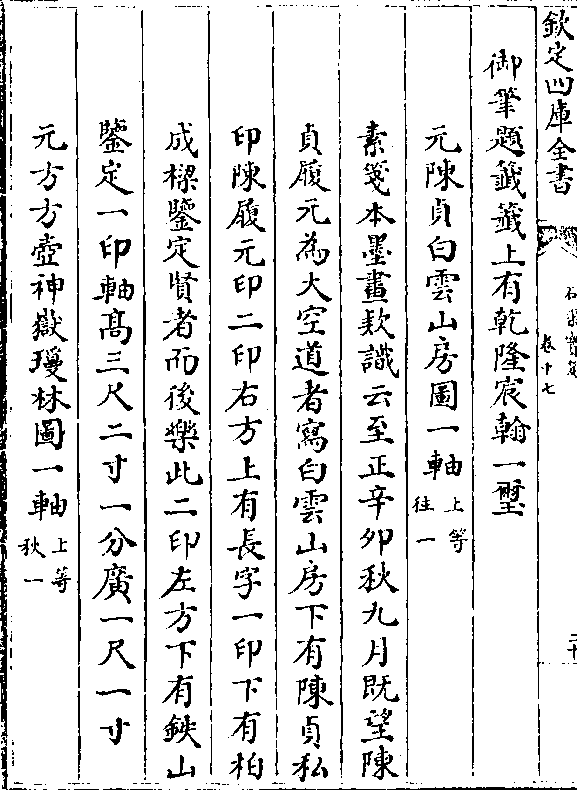 欽定四庫全書
石渠寶笈
卷十七
二十
御筆題籤籤上有乾隆宸翰一璽
元陳貞白雲山房圖一軸上等往一
素箋本墨畫欵識云至正辛卯秋九月既望陳
貞履元為大空道者寫白雲山房下有陳貞私
印陳履元印二印右方上有長字一印下有柏
成樑鑒定賢者而後樂此二印左方下有鉄山
鑒定一印軸高三尺二寸一分廣一尺一寸
元方方壺神嶽瓊林圖一軸上等秋一